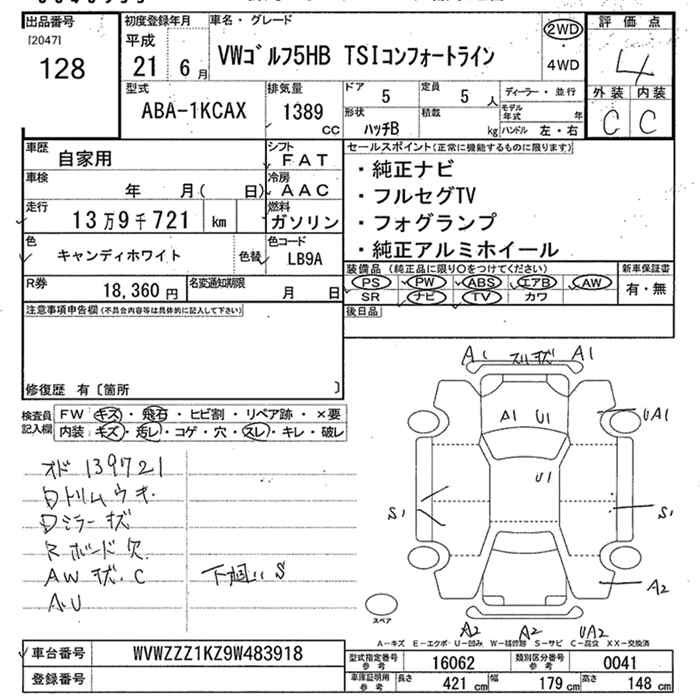 出品番号
[2047]
128
初度登録年月
平成
21 6月
車名・グレード
VWゴルフ5HB TSIコンフォートライン
2WD
・
4WD
評価点
4
外装 内装
C C
型式
ABA-1KCAX
排気量
1389
CC
ドア
5
定員
5 人
形状
ハッチB
積載
kg
ディーラー・並行
モデル年式 年
ハンドル 左・右
車歴
自家用
シフト
FAT
車検
年 月( 日)
冷房
AAC
走行
13万9千721 km
燃料
ガソリン
色
キャンディホワイト
色替
色コード
LB9A
R券
18,360円
名変通知期限
月 日
セールスポイント(正常に機能するものに限ります)
・純正ナビ
・フルセグTV
・フォグランプ
・純正アルミホイール
装備品(純正品に限り○をつけてください)
PS PW ABS エアB AW
SR ナビ TV カワ
新車保証書
有・無
後日品
注意事項申告欄(不具合内容等は具体的に記入して下さい)
修復歴 有〔箇所 〕
検査員記入欄
FW キズ・飛石・ヒビ割・リペア跡・×要
内装 キズ・汚レ・コゲ・穴・スレ・キレ・破レ
オド 139721
Dトリムウキ
Dミラーキズ
Rボード欠
AWキズ.C
A.U
下廻りS
A1 スリキズ A1
A1 U1
UA1
U1
S1
S1
A2
A2 A2 UA2
スペア
A-キズ E-エクボ U-凹み W-補修跡 S-サビ C-腐食 XX-交換済
車台番号
WVWZZZ1KZ9W483918
登録番号
型式指定番号 参考
16062
類別区分番号 参考
0041
車庫証明用 参考
長さ 421 cm 幅 179 cm 高さ 148 cm